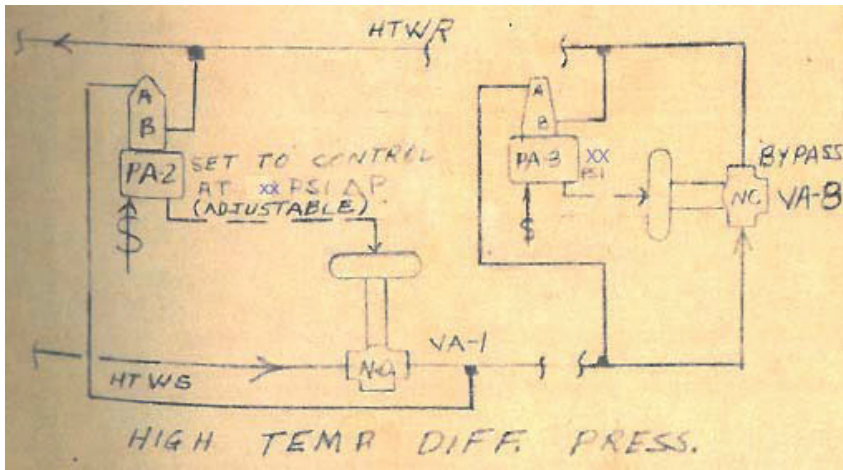 HTWR
A
B
PA-2
SET TO CONTROL
AT xx PSI ΔP
(ADJUSTABLE)
$
HTWS
N.O.
VA-1
A
B
PA-3
XX
PSI
$
BYPASS
NC
VA-B
HIGH TEMP DIFF. PRESS.